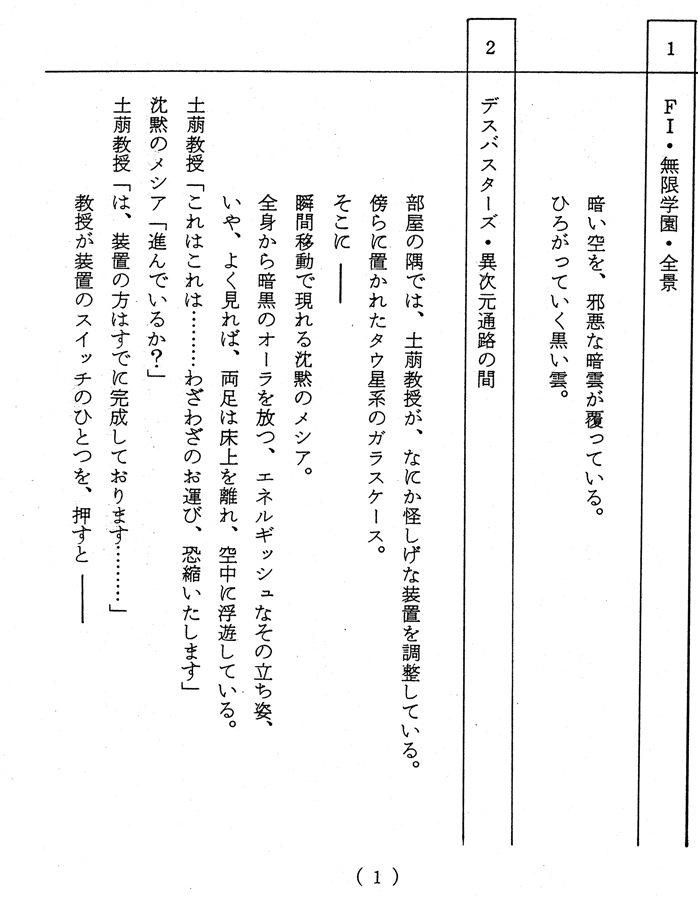 1 FI・無限学園・全景
暗い空を、邪悪な暗雲が覆っている。
ひろがっていく黒い雲。
2 デスバスターズ・異次元通路の間
部屋の隅では、土萠教授が、なにか怪しげな装置を調整している。
傍らに置かれたタウ星系のガラスケース。
そこに ――
瞬間移動で現れる沈黙のメシア。
全身から暗黒のオーラを放つ、エネルギッシュなその立ち姿、
いや、よく見れば、両足は床上を離れ、空中に浮遊している。
土萠教授「これはこれは…………わざわざのお運び、恐縮いたします」
沈黙のメシア「進んでいるか?」
土萠教授「は、装置の方はすでに完成しております…………」
教授が装置のスイッチのひとつを、押すと ――
(1)